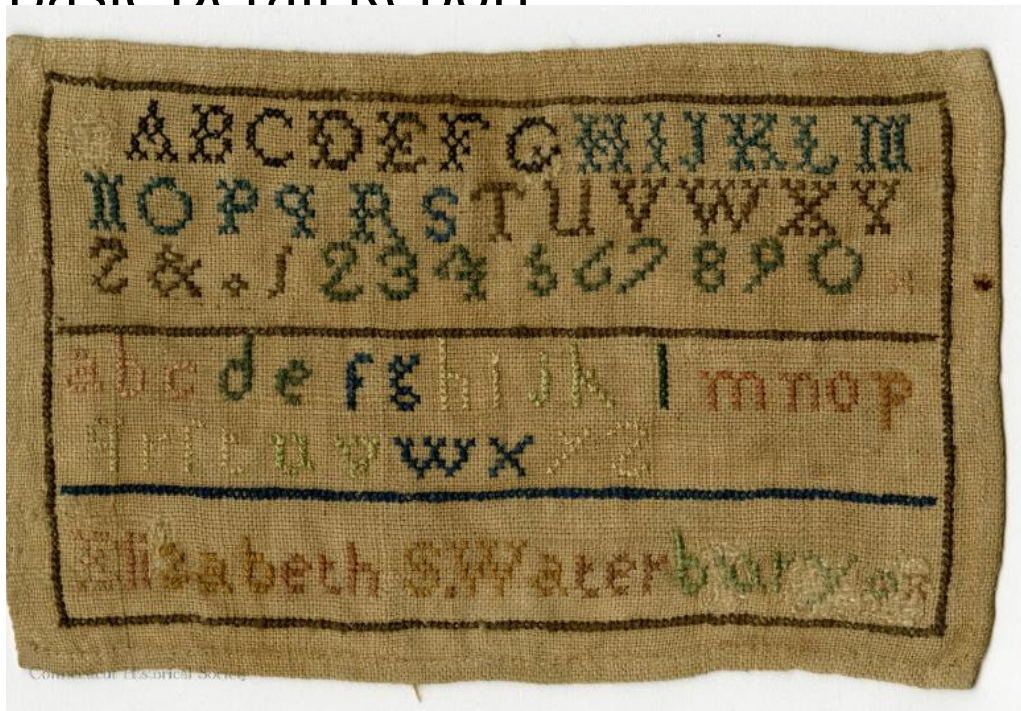 Basic Detail Report
ABCDEFGHIJKLM
NOPqRSTUVWXY
Z&.1234567890
abcdefghijklmnop
qrſtuvwxyz
Elizabeth S.Waterbury
Connecticut Historical Society